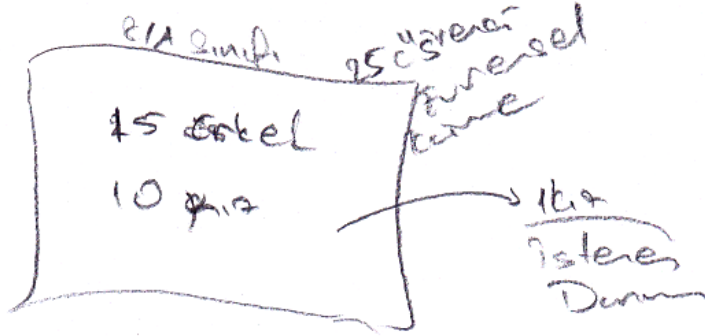 8/A Sınıfı
25 öğrenci
evrensel
küme
15 erkek
10 kız
1 kız
istenen
Durum